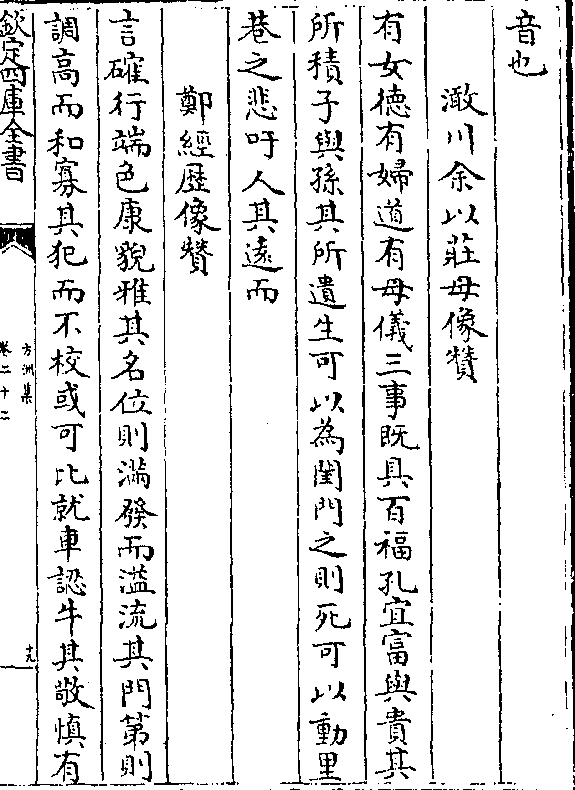 音也
澉川余以莊母像贊
有女德有婦道有母儀三事既具百福孔宜富與貴其
所積子與孫其所遺生可以為閨門之則死可以動里
巷之悲吁人其逺而
鄭經歴像贊
言確行端色康貌雅其名位則滿發而溢流其門第則
調高而和寡其犯而不校或可比就車認牛其敬慎有
欽定四庫全書
方洲集
卷二十二